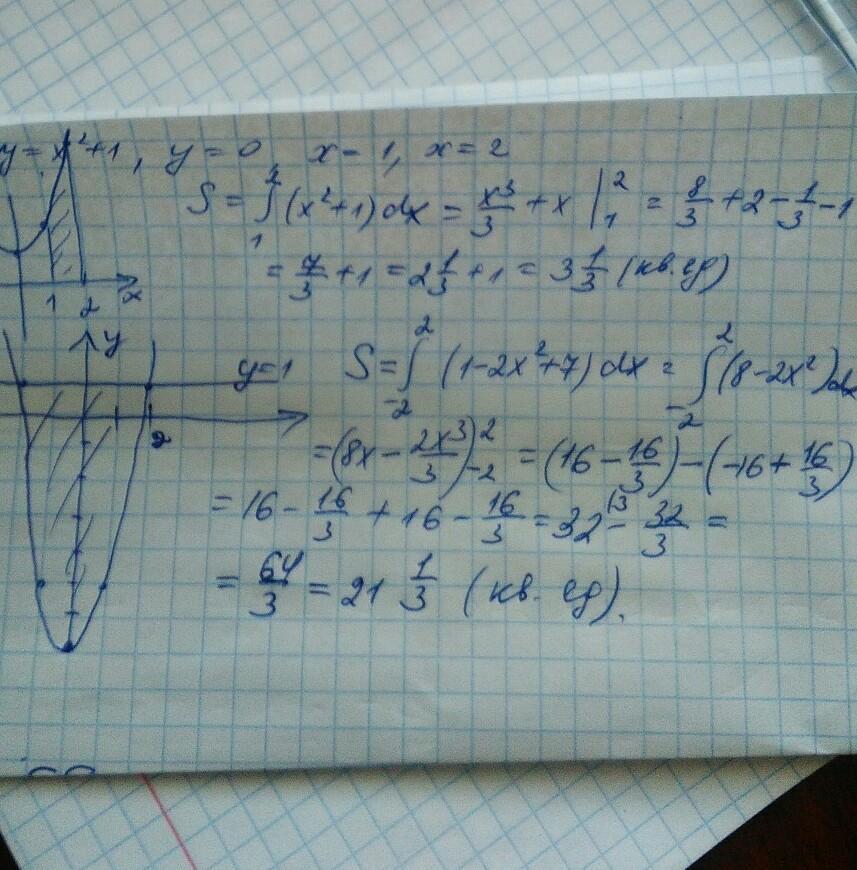 y = x²+1, y = 0, x - 1, x = 2
S = ∫₁² (x²+1) dx = x³/3 + x |₁² = 8/3 + 2 - 1/3 - 1
= 7/3 + 1 = 2 1/3 + 1 = 3 1/3 (кв. ед)
1 2 x
y
y=1
2
S = ∫₋₂² (1-2x²+7) dx = ∫₋₂² (8-2x²) dx
= (8x - 2x³/3)₋₂² = (16 - 16/3) - (-16 + 16/3)
= 16 - 16/3 + 16 - 16/3 = 32 ⁽³ - 32/3 =
= 64/3 = 21 1/3 (кв. ед).